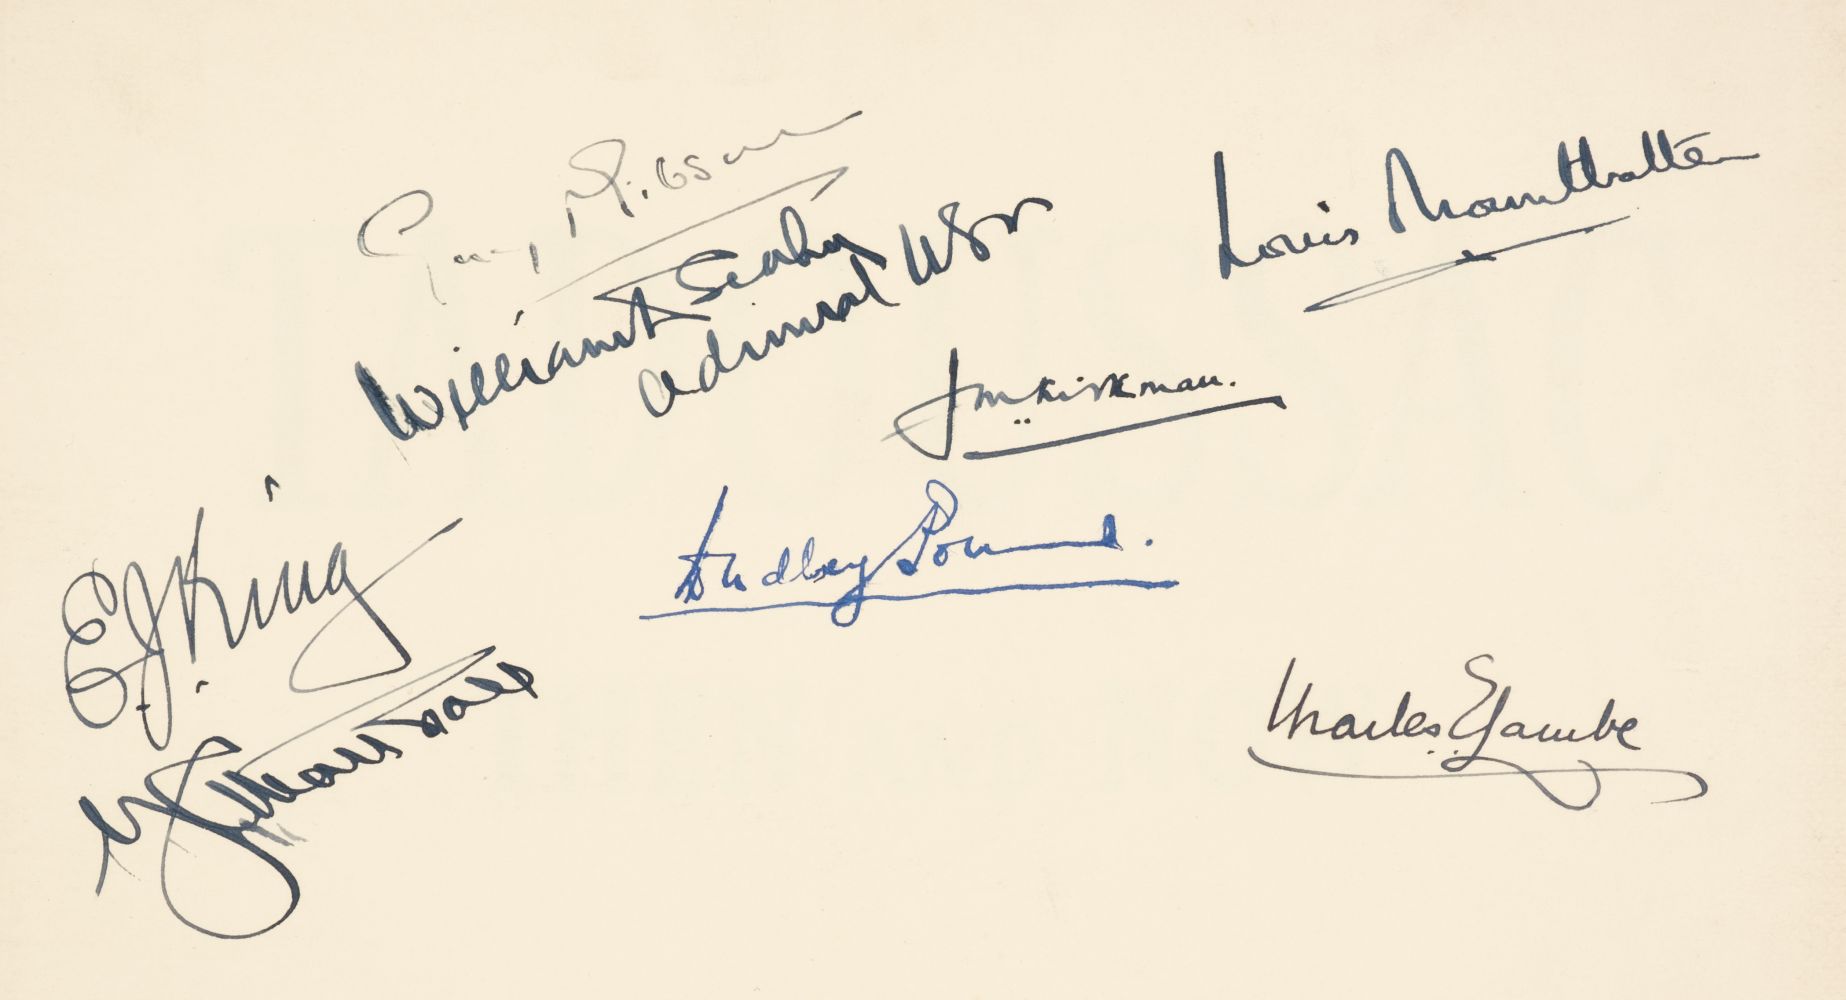 Guy Gibson
Louis Mountbatten
William D Leahy
Admiral USN
J M Kirkman.
E J King
Dudley Pound.
G C Marshall
Charles E Lambe